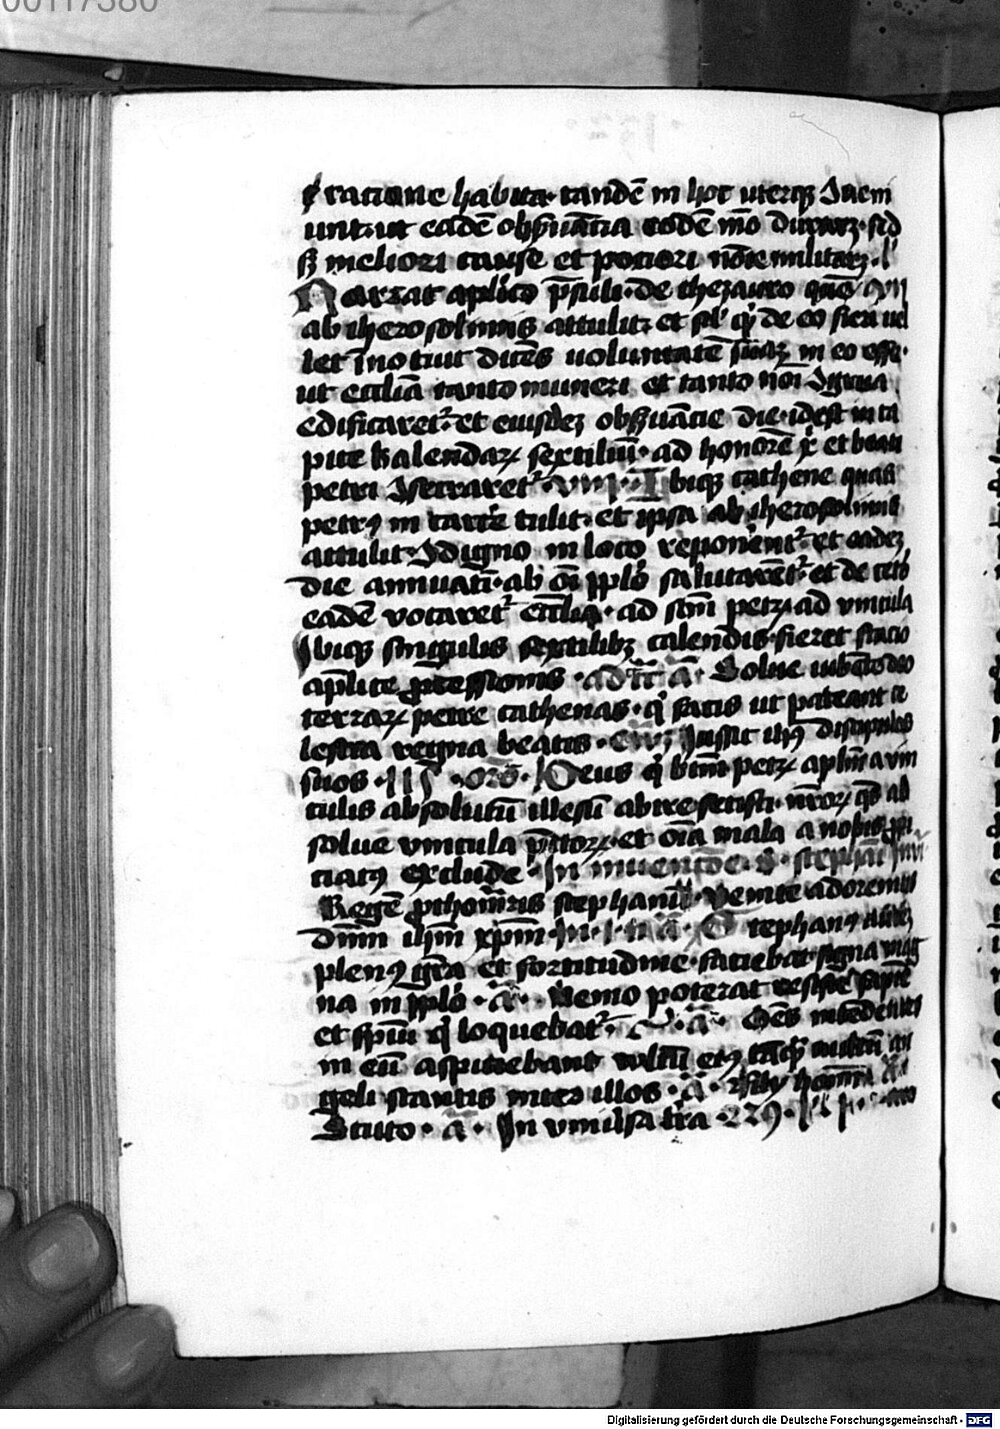 00117380
ratione habita· tandē in hoc uterq; Iuem
unt· ut eadē obs̄uātia eodē mō duraret· sed
s; meliori cause et potiori nōīe militaret·
Narrat aplico p̄suli· de thezauro quē
ab iherosolimis attulit· et sibi qd de eo fieri uel
let īnotuit dicēs uoluntatē suā in eo esse·
ut eccliā tanto muneri et tanto nōi Igrua
edificaret· et eiusdez obs̄uācie die· idest in ca
pite kalendaꝝ sextiliū· ad honorē et beati
petri Isecraret· VIII· Ibiq; cathene quas
petrꝰ in carcē tulit· et ipsa ab iherosolimis
attulit· Idigno in loco reponeret· et eadez
die annuatī· ab oī pplo salutaret· et de ceto
eadē vocaret ecclia· ad scm petꝝ ad vincula
Ibiq; singulis sextilibꝫ calendis· fieret stacio
aplice p̄cessionis · ad ā· Solue iubēte deo
terraꝝ petre cathenas· q̄ facis ut pateant ce
lestia regna beatis· Iussit ihs discipulos
suos · or̄o· Deus q̄ btm petꝝ aplm a vin
culis absolutū illesū abire fecisti· nroꝝ qs ab
solue vincula pcc̄oꝝ· et oīa mala a nobis ꝓpi
ciatꝰ exclude · In inuencōe· s· stephāi Inui
Regē ꝓthom̄ris stephani· Venite adoremus
Dnm ihm xpm· In· I· n ā· Stephanꝰ autez
plenꝰ grā et fortitudine· faciebat· signa mag
na in pplo · ā· Nemo poterat resistē sapiē
et spūi q̄ loquebat· ā· Oēs intēdentes
in eū aspiciebant vultū eiꝰ tāq̄ vultū an
geli stantis inter illos· ā· Filij hoīm ā
Scuto · ā· In vniūsa tr̄a ·
Digitalisierung gefördert durch die Deutsche Forschungsgemeinschaft - DFG